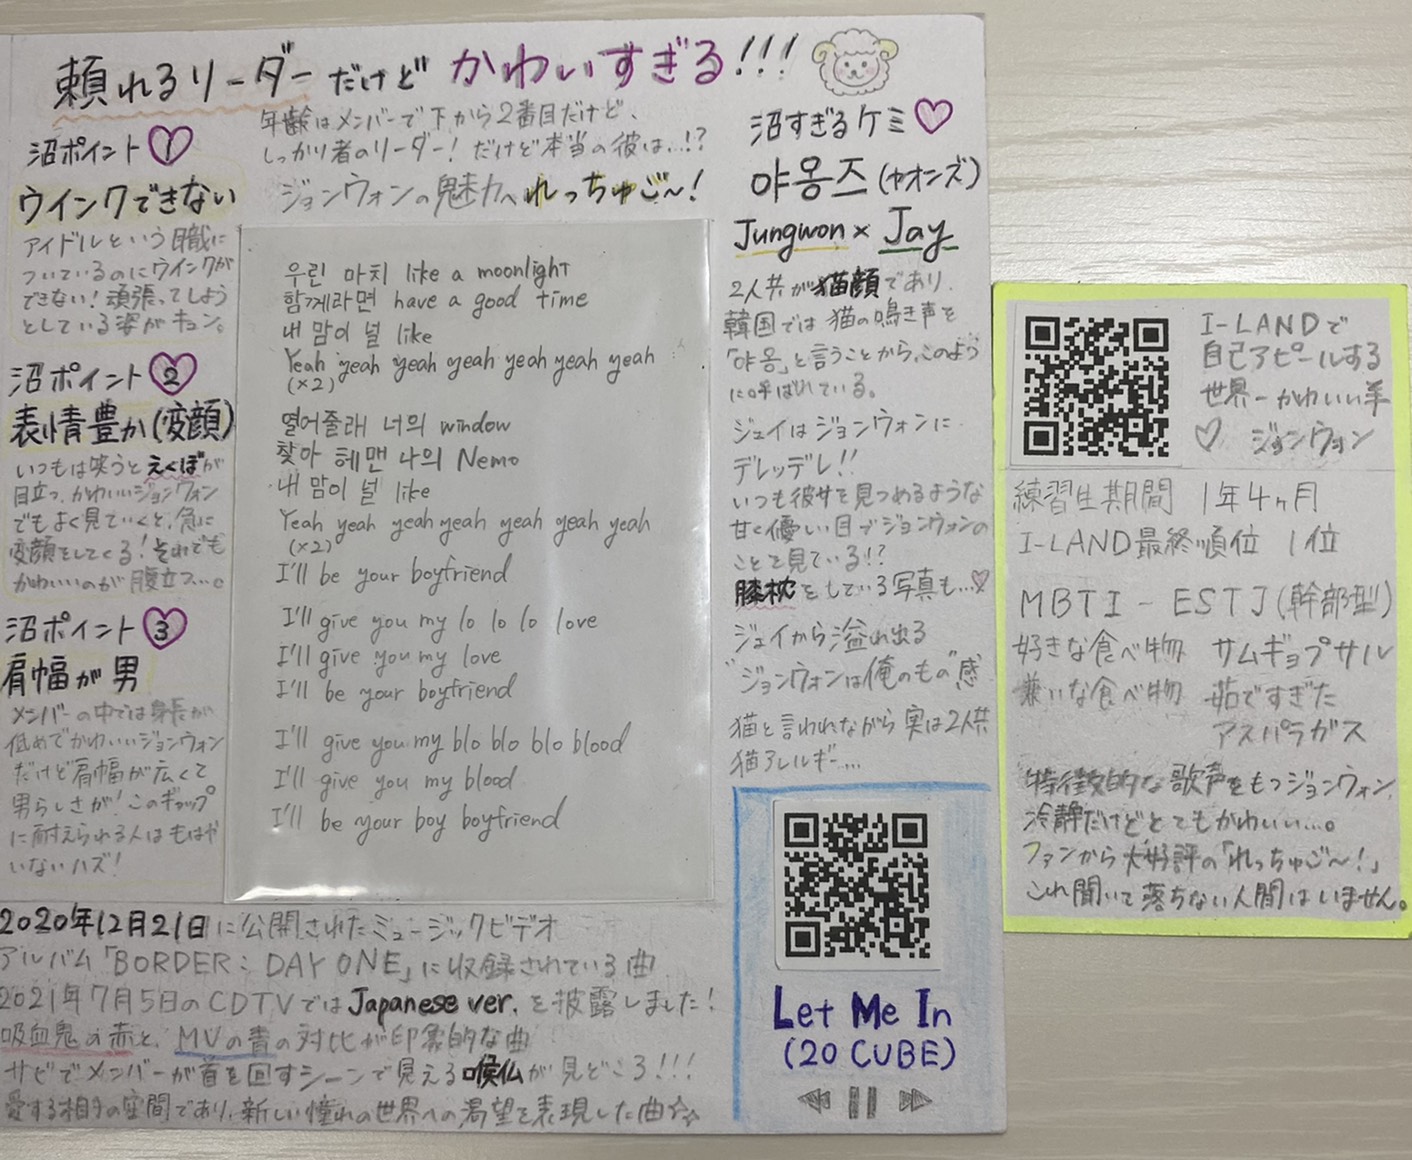 頼れるリーダーだけど かわいすぎる!!!
年齢はメンバーで下から2番目だけど、
しっかり者のリーダー! だけど本当の彼は…!?
ジョンウォンの魅力へれっちゅご〜!
沼ポイント 1
ウインクできない
アイドルという職に
ついているのにウインクが
できない! 頑張ってしよう
としている姿がキュン。
沼ポイント 2
表情豊か(変顔)
いつもは笑うとえくぼが
目立つ、かわいいジョンウォン
でもよく見ていくと、急に
変顔をしてくる! それでも
かわいいのが腹立つ…。
沼ポイント 3
肩幅が男
メンバーの中では身長が
低めでかわいいジョンウォン
だけど肩幅が広くて
男らしさが! このギャップ
に耐えられる人はもはや
いないハズ!
우린 마치 like a moonlight
함께라면 have a good time
내 맘이 널 like
Yeah yeah yeah yeah yeah yeah yeah
(×2)
열어줄래 너의 window
찾아 헤맨 나의 Nemo
내 맘이 널 like
Yeah yeah yeah yeah yeah yeah yeah
(×2)
I'll be your boyfriend
I'll give you my lo lo lo love
I'll give you my love
I'll be your boyfriend
I'll give you my blo blo blo blood
I'll give you my blood
I'll be your boy boyfriend
沼すぎるケミ
야옹즈(ヤオンズ)
Jungwon × Jay
2人共が猫顔であり、
韓国では猫の鳴き声を
「야옹」と言うことから、このよう
に呼ばれている。
ジェイはジョンウォンに
デレッデレ!!
いつも彼女を見つめるような
甘く優しい目でジョンウォンの
ことを見ている!?
膝枕をしている写真も…
ジェイから溢れ出る
"ジョンウォンは俺のもの"感
猫と言われながら実は2人共
猫アレルギー…
Let Me In
(20 CUBE)
2020年12月21日に公開されたミュージックビデオ
アルバム「BORDER : DAY ONE」に収録されている曲
2021年7月5日のCDTVではJapanese ver.を披露しました!
吸血鬼の赤と、MVの青の対比が印象的な曲
サビでメンバーが首を回すシーンで見える喉仏が見どころ!!!
愛する相手の空間であり、新しい憧れの世界への渇望を表現した曲
I-LANDで
自己アピールする
世界一かわいい羊
♡ ジョンウォン
練習生期間 1年4ヶ月
I-LAND最終順位 1位
MBTI - ESTJ(幹部型)
好きな食べ物 サムギョプサル
嫌いな食べ物 茹ですぎた
アスパラガス
特徴的な歌声をもつジョンウォン、
冷静だけどとてもかわいい…。
ファンから大好評の「れっちゅご〜!」
これ聞いて落ちない人間はいません。